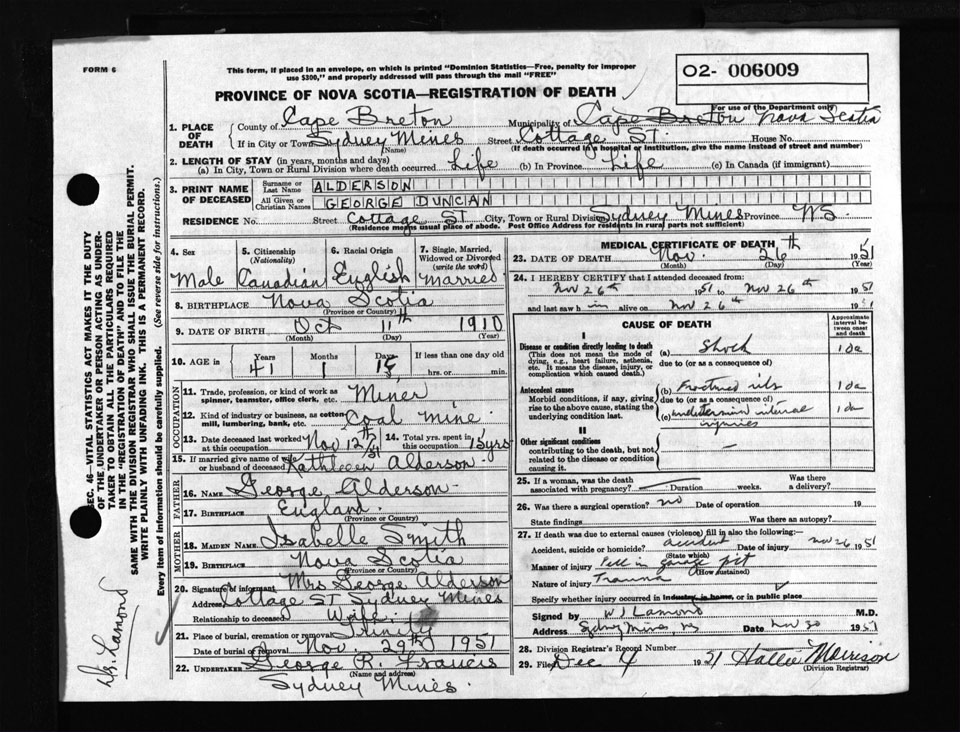 FORM 6
This form, if placed in an envelope, on which is printed "Dominion Statistics—Free, penalty for improper
use $300," and properly addressed will pass through the mail "FREE"
O2- 006009
For use of the Department only
PROVINCE OF NOVA SCOTIA—REGISTRATION OF DEATH
1. PLACE OF DEATH
County of Cape Breton Municipality of Cape Breton Nova Scotia
If in City or Town Sydney Mines Street Cottage ST. House No.
(Name) (If death occurred in a hospital or institution, give the name instead of street and number)
2. LENGTH OF STAY (in years, months and days)
(a) In City, Town or Rural Division where death occurred Life (b) In Province Life (c) In Canada (if immigrant)
3. PRINT NAME OF DECEASED
Surname or Last Name ALDERSON
All Given or Christian Names GEORGE DUNCAN
RESIDENCE No. Street Cottage ST City, Town or Rural Division Sydney Mines Province N.S.
(Residence means usual place of abode. Post Office Address for residents in rural parts not sufficient)
4. Sex Male
5. Citizenship (Nationality) Canadian
6. Racial Origin English
7. Single, Married, Widowed or Divorced (write the word) Married
8. BIRTHPLACE Nova Scotia
(Province or Country)
9. DATE OF BIRTH Oct 11th 1910
(Month) (Day) (Year)
10. AGE in Years Months Days If less than one day old
41 1 hrs. or min.
OCCUPATION
11. Trade, profession, or kind of work as spinner, teamster, office clerk, etc. Miner
12. Kind of industry or business, as cotton mill, lumbering, bank, etc. Coal Mine
13. Date deceased last worked at this occupation Nov 12th 51
14. Total yrs. spent in this occupation 15 yrs
15. If married give name of wife or husband of deceased Kathleen Alderson
FATHER
16. NAME George Alderson
17. BIRTHPLACE England.
(Province or Country)
MOTHER
18. MAIDEN NAME Isabelle Smith
19. BIRTHPLACE Nova Scotia
(Province or Country)
20. Signature of informant Mrs George Alderson
Address Cottage ST Sydney Mines
Relationship to deceased Wife.
21. Place of burial, cremation or removal Trinity
Date of burial or removal Nov. 29th 1951
22. UNDERTAKER George R. Francis
(Name and address)
Sydney Mines.
MEDICAL CERTIFICATE OF DEATH
23. DATE OF DEATH Nov. 26th 1951
(Month) (Day) (Year)
24. I HEREBY CERTIFY that I attended deceased from:
Nov 26th 1951 to Nov 26th 1951
and last saw him alive on Nov 26th 1951
CAUSE OF DEATH
Approximate interval between onset and death
I
Disease or condition directly leading to death (This does not mean the mode of dying, e.g., heart failure, asthenia, etc. It means the disease, injury, or complication which caused death.)
(a) Shock 1 da
due to (or as a consequence of)
Antecedent causes
Morbid conditions, if any, giving rise to the above cause, stating the underlying condition last.
(b) Fractured ribs 1 da
due to (or as a consequence of)
(c) internal injuries 1 da
II
Other significant conditions contributing to the death, but not related to the disease or condition causing it. —
25. If a woman, was the death associated with pregnancy? Duration weeks. Was there a delivery?
26. Was there a surgical operation? no Date of operation 19
State findings Was there an autopsy?
27. If death was due to external causes (violence) fill in also
Accident, suicide or homicide? accident Date of injury Nov 26 1951
(State which)
Manner of injury Fell in garage pit
(How sustained)
Nature of injury Trauma
Specify whether injury occurred in industry, in home, or in public place
Signed by W J Lamond M.D.
Address Sydney Mines, NS Date Nov 30 1951
28. Division Registrar's Record Number
29. Filed Dec 4 1951 Hallie Morrison
(Division Registrar)
SEC. 46—VITAL STATISTICS ACT MAKES IT THE DUTY
OF THE UNDERTAKER OR PERSON ACTING AS UNDER-
TAKER TO OBTAIN ALL THE PARTICULARS REQUIRED
IN THE "REGISTRATION OF DEATH" AND TO FILE THE
SAME WITH THE DIVISION REGISTRAR WHO SHALL ISSUE THE BURIAL PERMIT.
WRITE PLAINLY WITH UNFADING INK. THIS IS A PERMANENT RECORD.
Every item of information should be carefully supplied. (See reverse side for instructions.)
Dr. Lamond